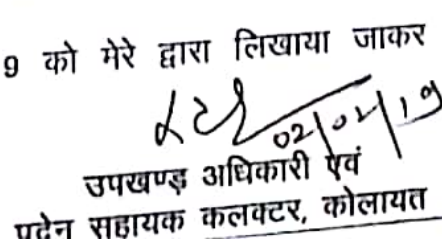 9 को मेरे द्वारा लिखाया जाकर
02/02/19
उपखण्ड अधिकारी एवं
पदेन सहायक कलक्टर, कोलायत